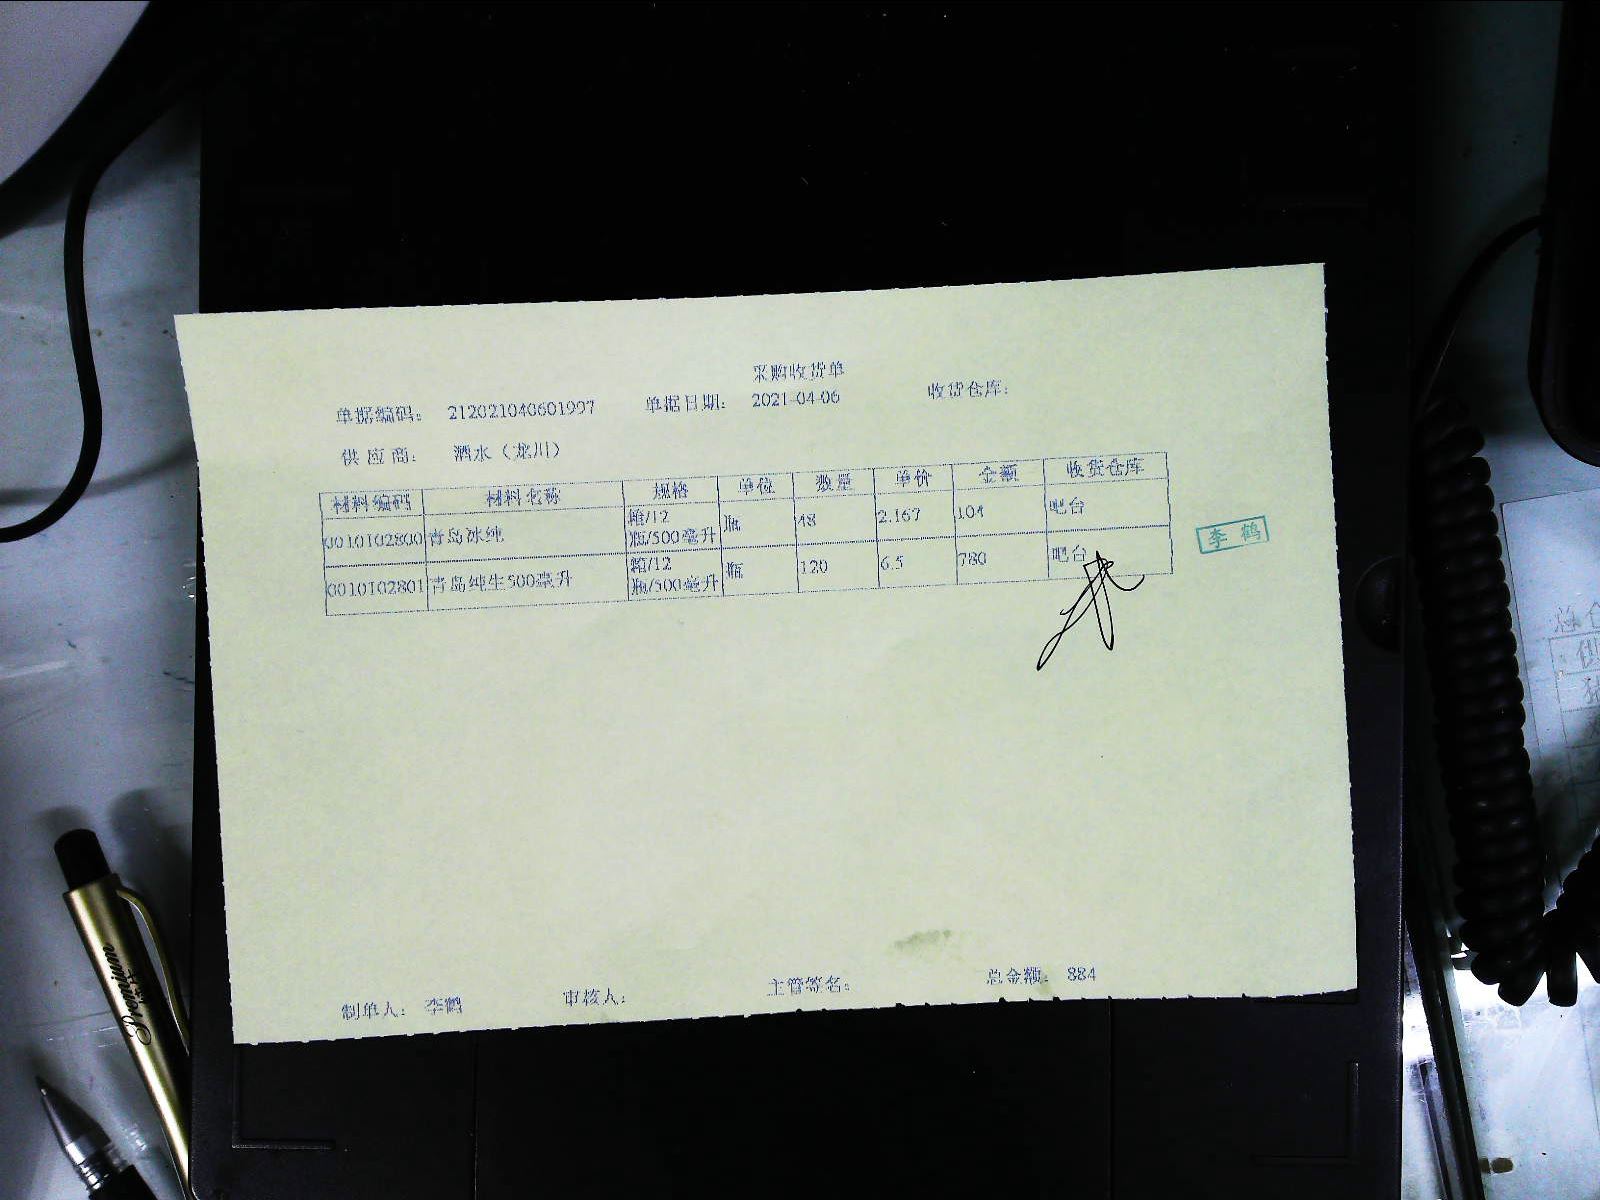 采购收货单
单据编码: 212021040601997 单据日期: 2021-04-06 收货仓库:
供应商: 酒水（龙川）
材料编码 材料名称 规格 单位 数量 单价 金额 收货仓库
0010102800 青岛冰纯 箱/12瓶/500毫升 瓶 48 2.167 104 吧台
0010102801 青岛纯生500毫升 箱/12瓶/500毫升 瓶 120 6.5 780 吧台
李鹤
制单人: 李鹤 审核人: 主管签名: 总金额: 884
Premium